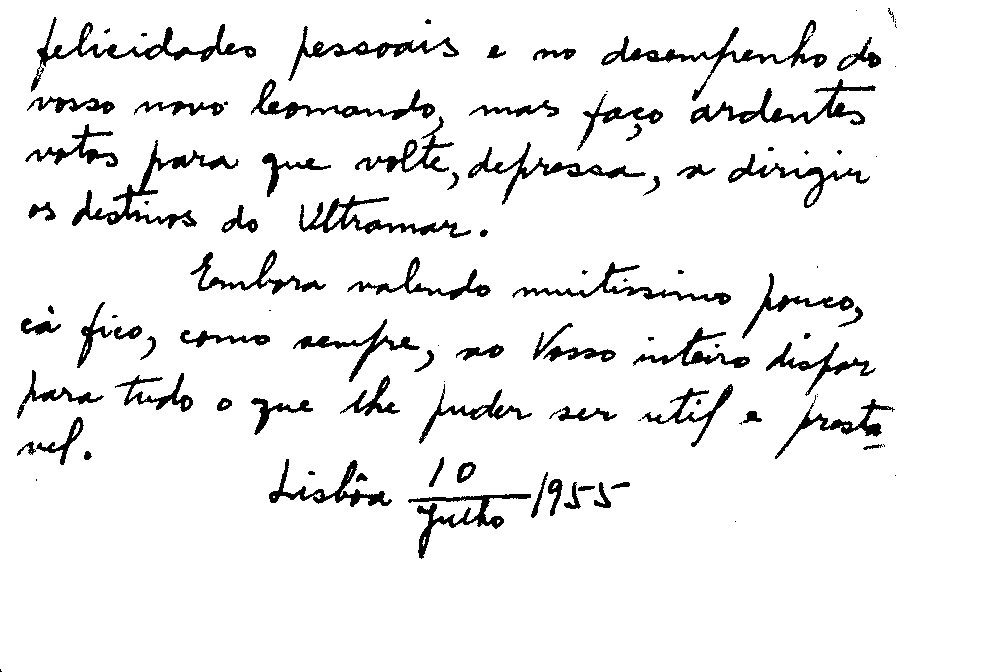 felicidades pessoais e no desempenho do
vosso novo Comando, mas faço ardentes
votos para que volte, depressa, a dirigir
os destinos do Ultramar.
Embora valendo muitissimo pouco,
cá fico, como sempre, ao Vosso inteiro dispor
para tudo o que lhe puder ser util e presta
vel.
Lisbôa 10/Julho/1955